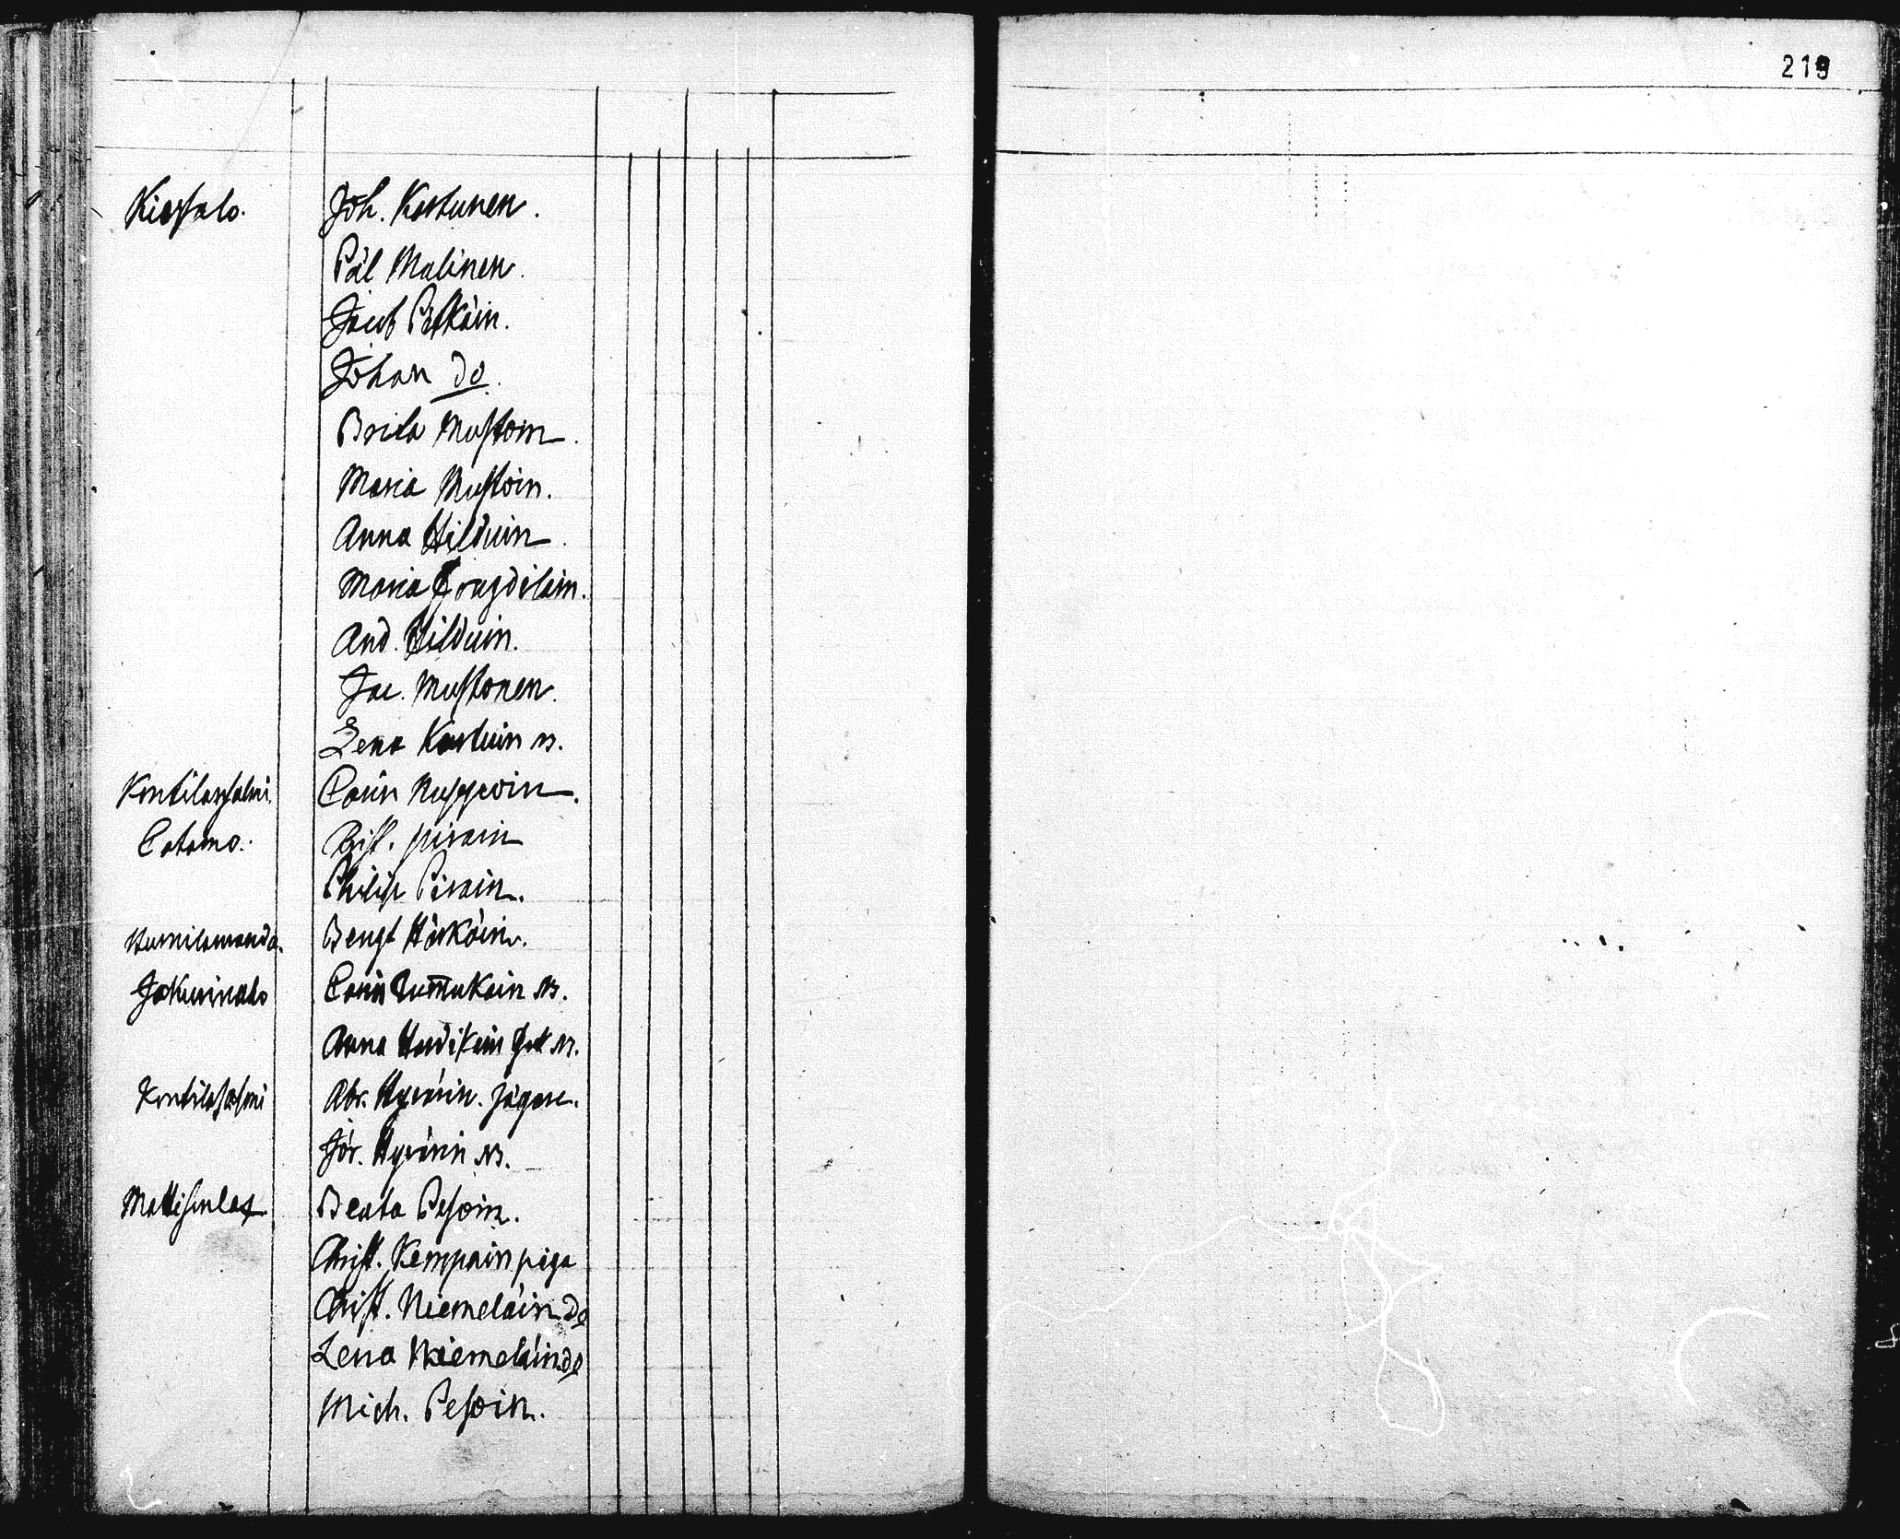 219
Kiestalo. Joh. Kortunen.
Pål Malinen.
Jacob Pitkäin.
Johan do.
Brita Mustoin.
Maria Mustoin.
Anna Hilduin.
Maria
And. Hilduin.
Jac. Mustonen.
Lena Kortuin
Kontilansalmi Carin
Catamo. Pirain
Philip Pirain.
Bengt Härkäin.
Carin
Anna
Abr. Hyvärin. Jägare.
Jör. Hyvärin
Beata Pesoin.
Christ. Kempain piga
Christ. Niemeläin do
Lena Niemeläin do
Mich. Pesoin.